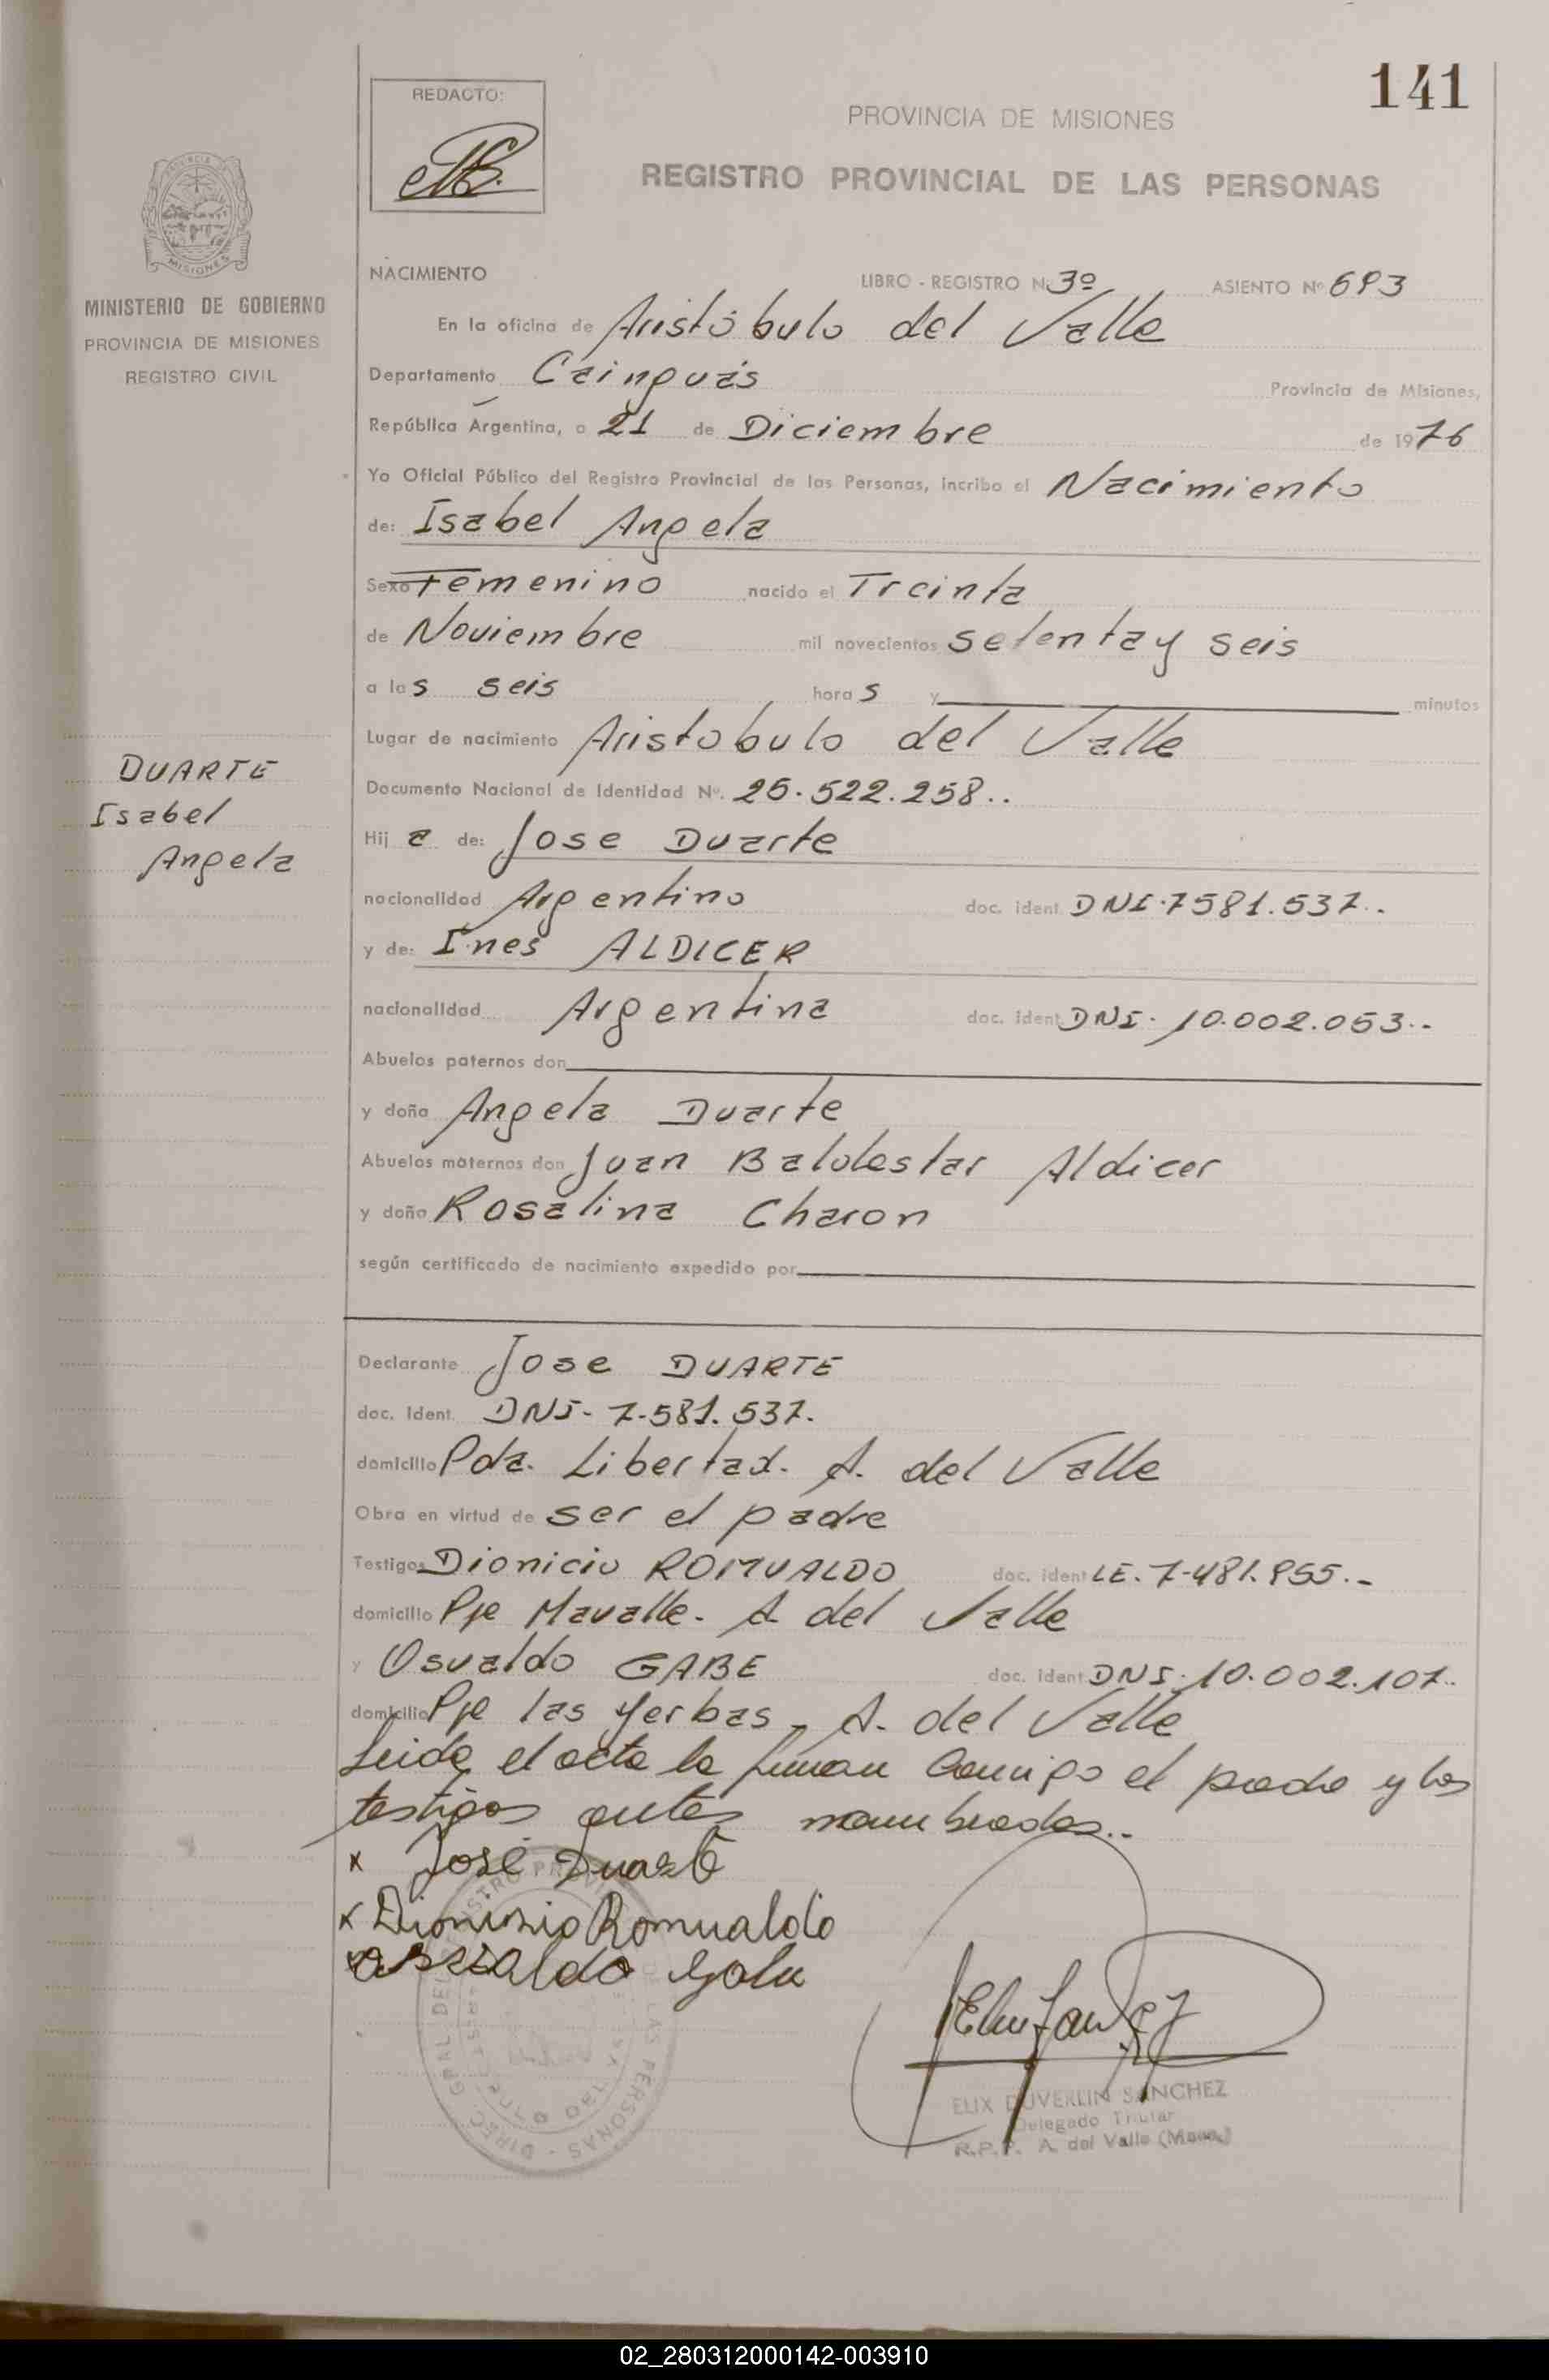 141
REDACTO:
PROVINCIA DE MISIONES
REGISTRO PROVINCIAL DE LAS PERSONAS
MISIONES
MINISTERIO DE GOBIERNO
PROVINCIA DE MISIONES
REGISTRO CIVIL
NACIMIENTO LIBRO - REGISTRO Nº 3º ASIENTO Nº 693
En la oficina de Aristóbulo del Valle
Departamento Cainguás Provincia de Misiones,
República Argentina, a 21 de Diciembre de 1976
Yo Oficial Público del Registro Provincial de las Personas, incribo el Nacimiento
de: Isabel Angela
Sexo Femenino nacido el Treinta
de Noviembre mil novecientos setenta y seis
a las seis horas y minutos
Lugar de nacimiento Aristobulo del Valle
DUARTE
Isabel
Angela
Documento Nacional de Identidad Nº. 25.522.258..
Hija de: Jose Duarte
nacionalidad Argentino doc. ident. DNI.7581.537..
y de: Ines ALDICER
nacionalidad Argentina doc. ident. DNI. 10.002.053..
Abuelos paternos don
y doña Angela Duarte
Abuelos maternos don Juan Aldicer
y doña Rosalina Charon
según certificado de nacimiento expedido por
Declarante Jose DUARTE
doc. Ident. DNI- 7.581.537.
domicilio Pda. Libertad. A. del Valle
Obra en virtud de ser el padre
Testigos Dionicio ROMUALDO doc. ident LE. 7.481.955.-
domicilio Pje Mavalle. A del Valle
y Osvaldo GABE doc. ident DNI. 10.002.107..
domicilio Pje las Yerbas - A. del Valle
Leida el acta la firman conmigo el padre y los
testigos antes nombrados..
x José Duarte
x Dionisio Romualdo
ELIX DUVERLIN SANCHEZ
Delegado Titular
R.P.P. A. del Valle (Mnes.)
02_280312000142-003910